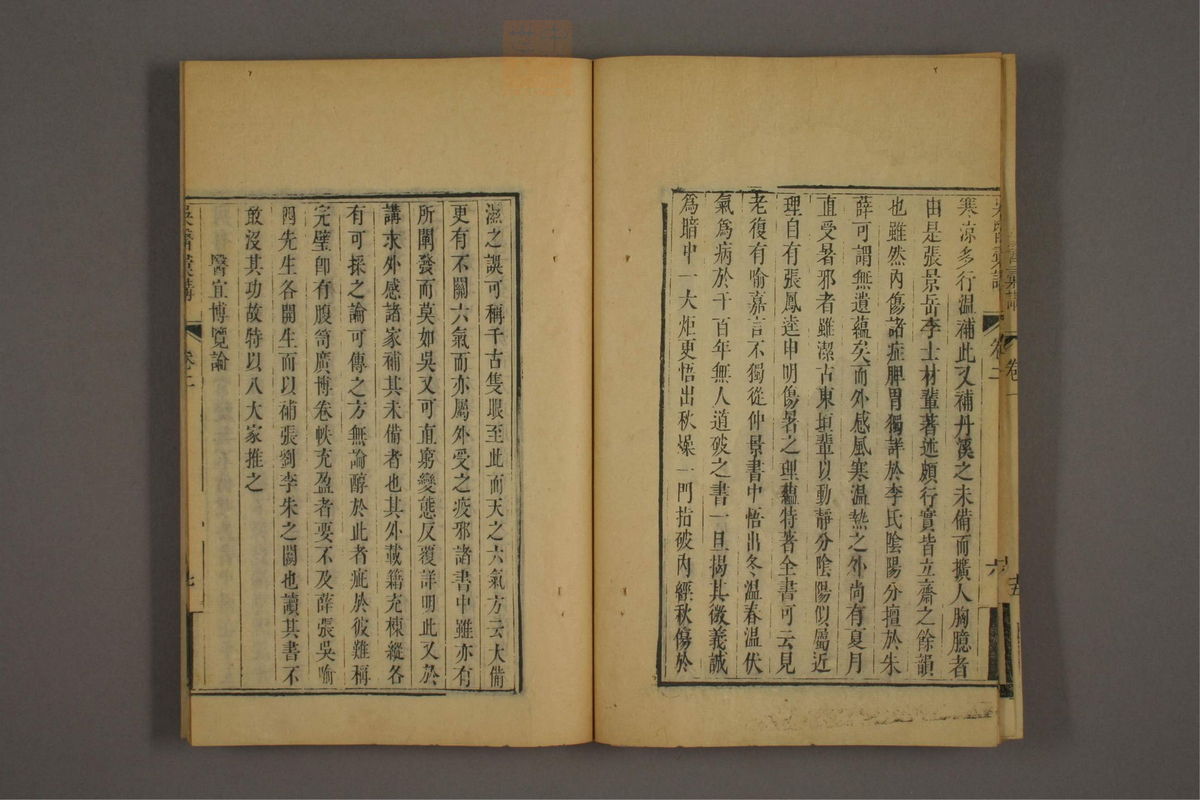 寒涼多行溫補此又補丹溪之未備而擴人胸臆者
由是張景岳李士材輩著述頗行實皆立齋之餘韻
也雖然內傷諸症脾胃獨詳於李氏陰陽分擅於朱
薛可謂無遺蘊矣而外感風寒溫熱之外尚有夏月
直受暑邪者雖潔古東垣輩以動靜分陰陽似屬近
理自有張鳳逵申明傷暑之理蘊特著全書可云見
老復有喻嘉言不獨從仲景書中悟出冬溫春溫伏
氣為病於千百年無人道破之書一旦揭其微義誠
為暗中一大炬更悟出秋燥一門指破內經秋傷於
濕之誤可稱千古隻眼至此而天之六氣方云大備
更有不關六氣而亦屬外受之疫邪諸書中雖亦有
所闡發而莫如吳又可直窮變態反覆詳明此又於
講求外感諸家補其未備者也其外載籍充棟縱各
有可採之論可傳之方無論醇於此者疵於彼難稱
完璧卽有腹笥廣博卷帙充盈者要不及薛張吳喻
四先生各開生面以補張劉李朱之闕也讀其書不
敢沒其功故特以八大家推之
醫宜博覽論
吳醫彙講
卷二
七
吳醫彙講
卷二
六
卷二
五